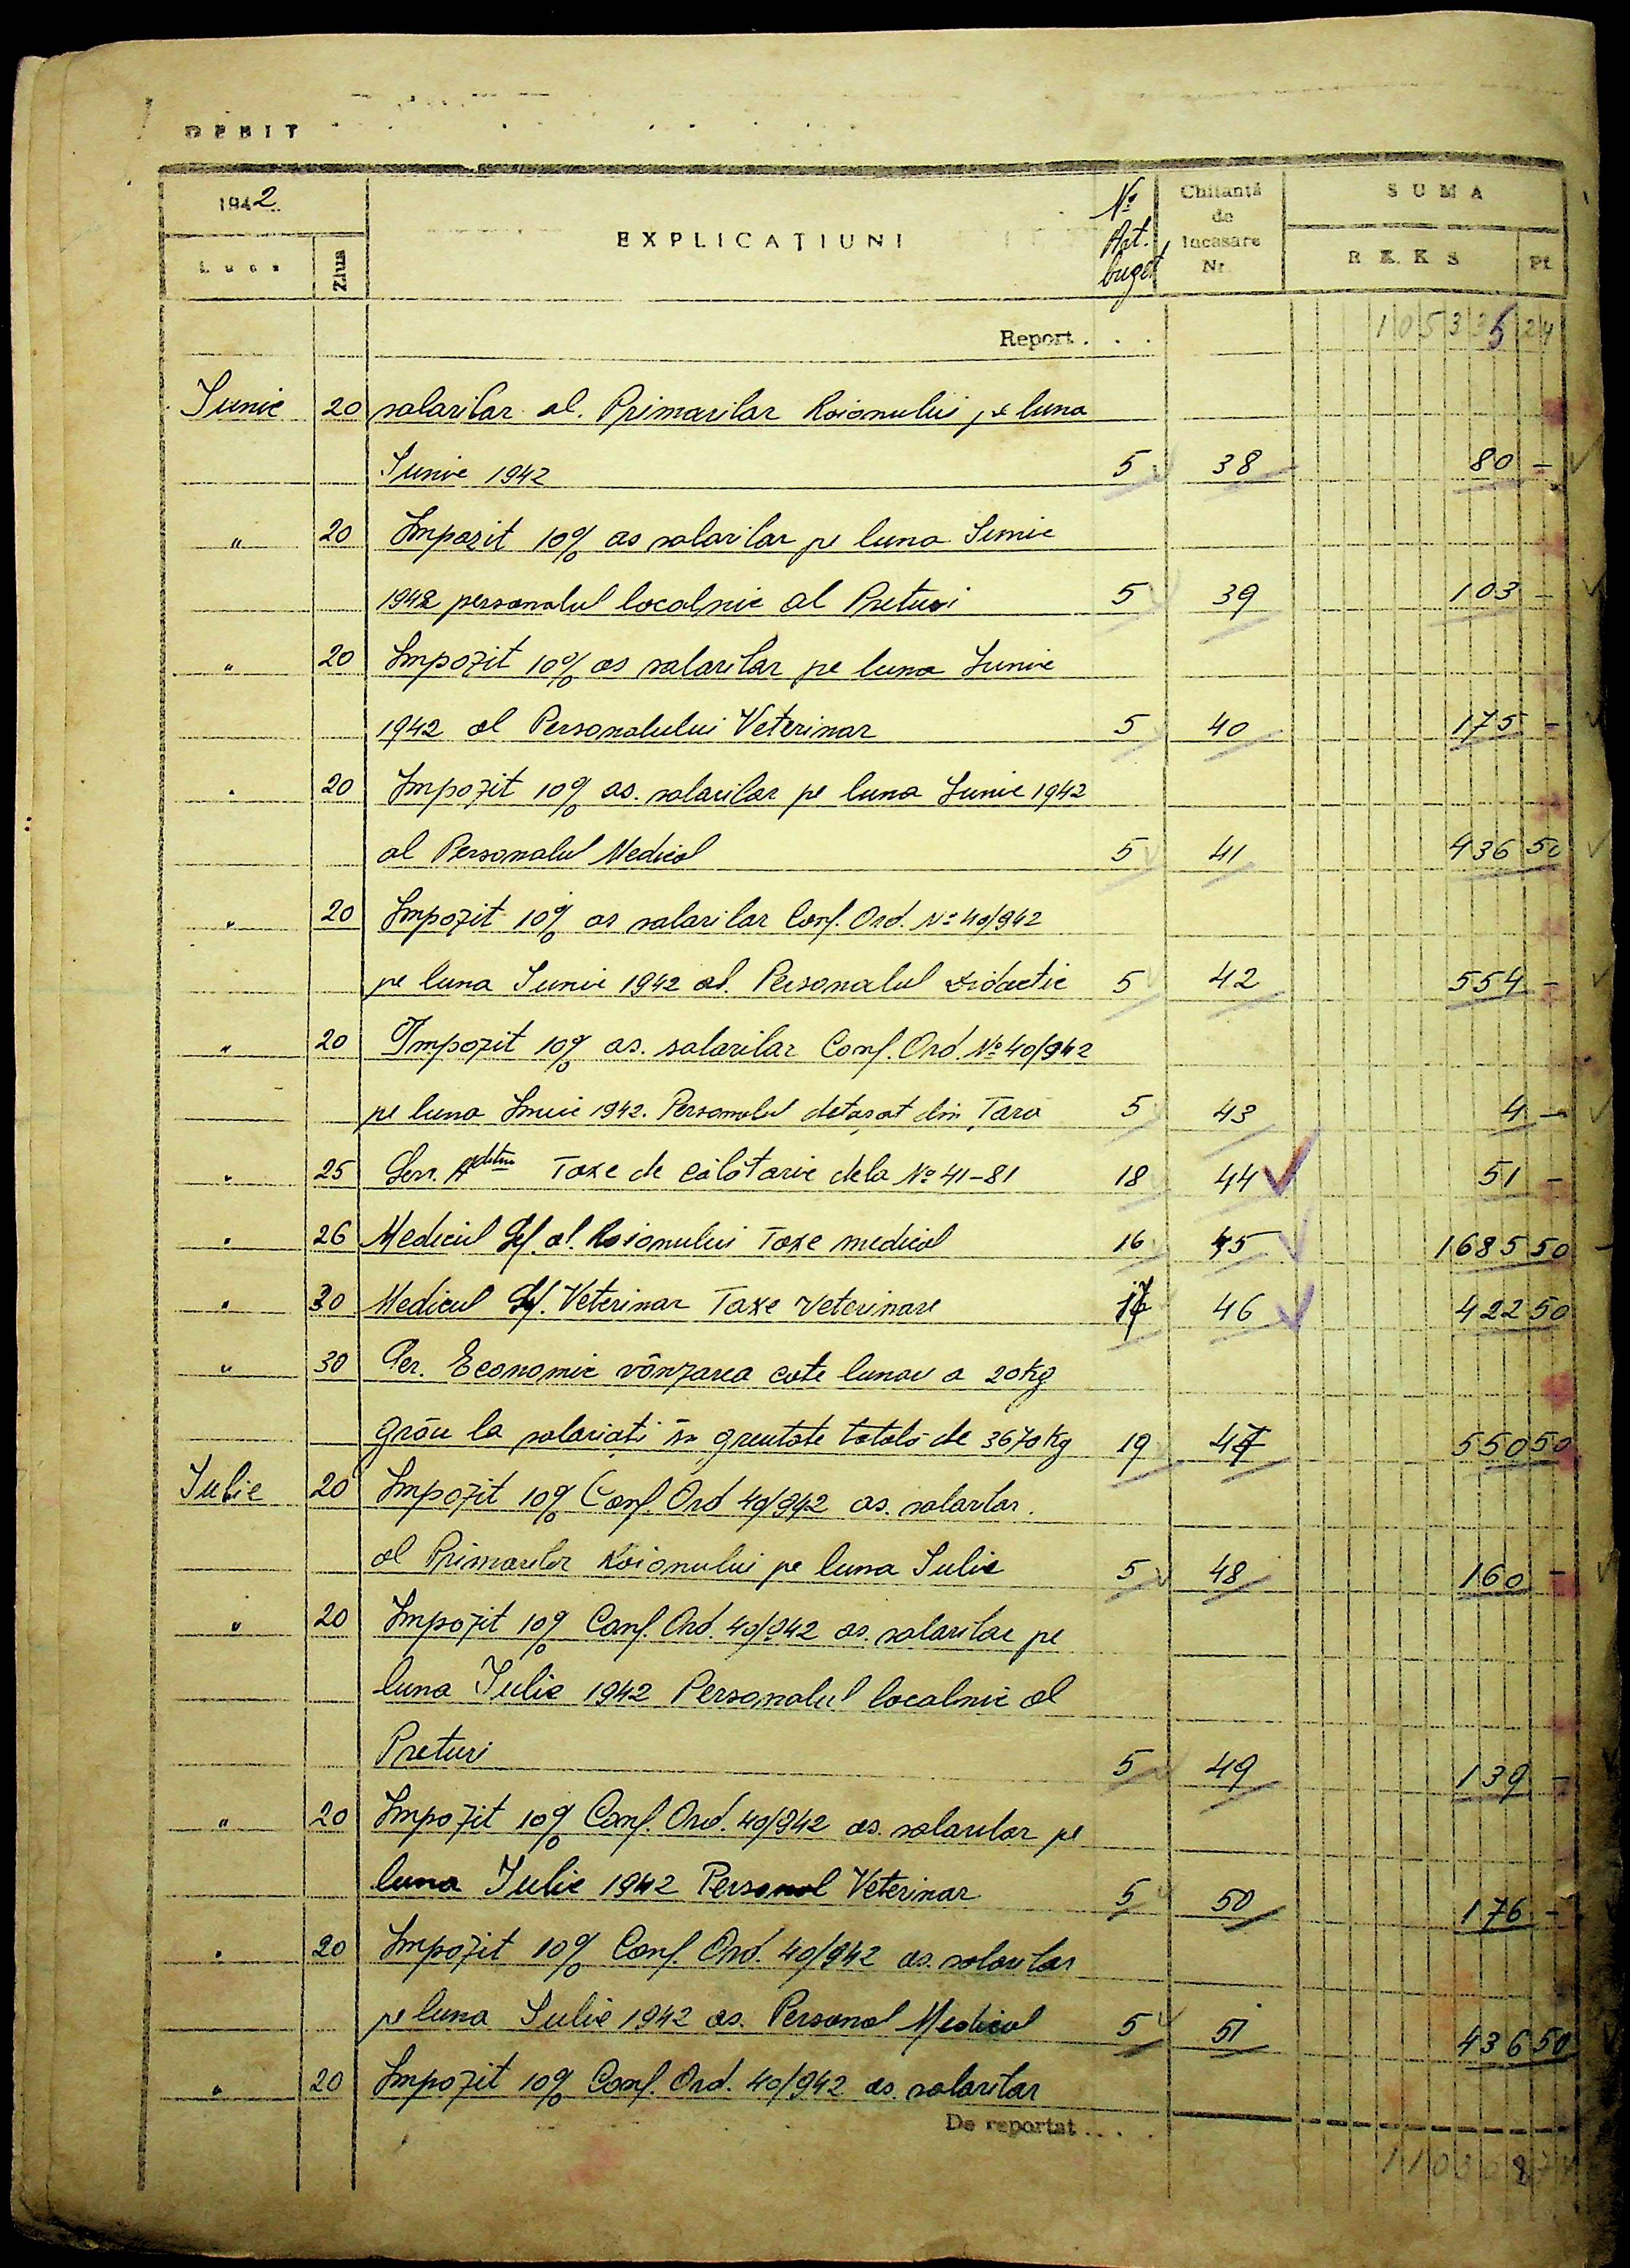 DEBIT
1942
Luna
Ziua
EXPLICAȚIUNI
No Art. buget
Chitanță de Incasare Nr.
SUMA
R.K.K.S
Pf.
Report . . . 105335 24
Iunie 20 salarilor al. Primarilor Raionului pe luna
Iunie 1942 5 38 80 -
" 20 Impozit 10% as salarilor pe luna Iunie
1942 personalul localnic al Preturi 5 39 103 -
" 20 Impozit 10% as salarilor pe luna Iunie
1942 al Personalului Veterinar 5 40 175 -
" 20 Impozit 10% as. salarilor pe luna Iunie 1942
al Personalul Medical 5 41 436 50
" 20 Impozit 10% as salarilor Conf. Ord. No 40/942
pe luna Iunie 1942 al. Personalul Didactic 5 42 554 -
" 20 Impozit 10% as. salarilor Conf. Ord. No 40/942
pe luna Iunie 1942. Personalul detașat din Țara 5 43 4 -
" 25 Serv. Taxe de călătorie dela No 41-81 18 44 51 -
" 26 Medicul Șef. al. Raionului Taxe medical 16 45 1685 50
" 30 Medicul Șef. Veterinar Taxe Veterinare 17 46 422 50
" 30 Ser. Economic vânzarea cote lunar a 20 Kg
grâu la salariați în greutate totală de 3670 Kg 19 47 550 50
Iulie 20 Impozit 10% Conf. Ord 40/942 as. salarilor.
al Primarilor Raionului pe luna Iulie 5 48 160 -
" 20 Impozit 10% Conf. Ord. 40/942 as. salarilor pe
luna Iulie 1942 Personalul localnic al
Preturi 5 49 139 -
" 20 Impozit 10% Conf. Ord. 40/942 as. salarilor pe
luna Iulie 1942 Personal Veterinar 5 50 176 -
" 20 Impozit 10% Conf. Ord. 40/942 as. salarilor
pe luna Iulie 1942 as. Personal Medical 5 51 436 50
" 20 Impozit 10% Conf. Ord. 40/942 as. salarilor
De reportat . . . .